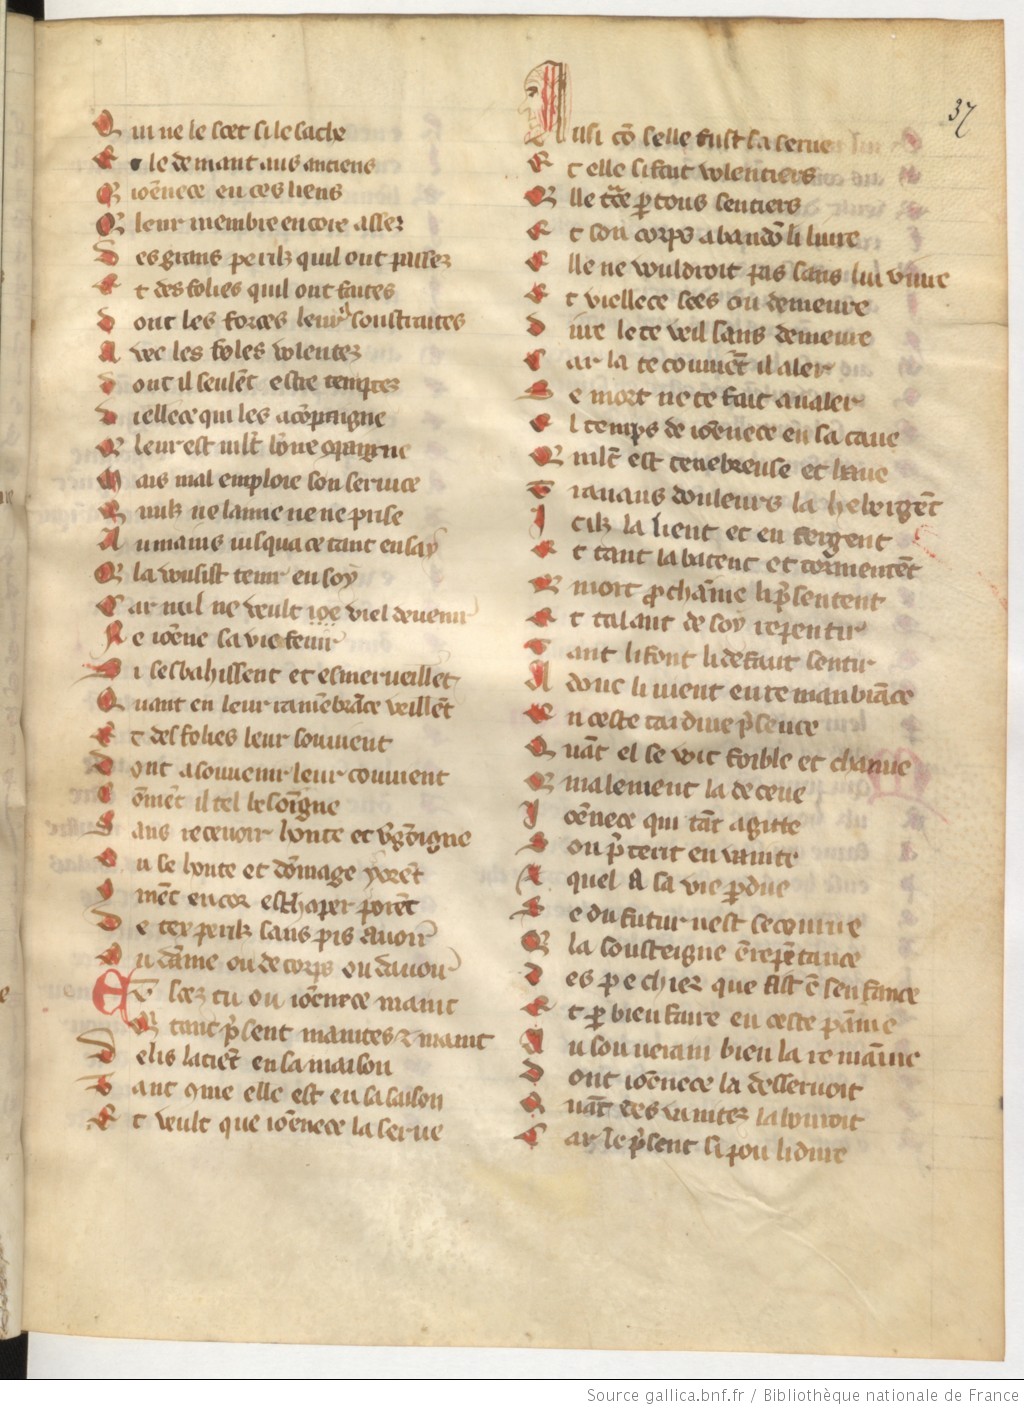 37
Q ui ne le scet si le sache
E t le demant aus anciens
Q ioēnece en ces liens
Q leur membre encore assez
D es grans perilz quil ont passez
E t des folies quil ont faites
D ont les forces leur soustraites
A vec les foles volentez
D ont il seulēt estre temptez
V iellece qui les acōpaigne
Q leur est mlt bōne cōpaigne
M ais mal emploie son service
E nulz ne lanme ne ne prise
A u mains iusqua ce tant en say
Q la vousist tenir en soy
C ar nul ne veult viel devenir
N e ioēne sa vie fenir
S i sesbahissent et esmerveillēt
Q uant en leur ramēbrāce veillēt
E t des folies leur souvient
D ont a souvenir leur couvient
C ōmēt il tel besoigne
S ans recevoir honte et vgōigne
O u se honte et dōmage yorēt
C mēt encor eschaper porēt
D e tex perilz sans pis avoir
O u dāme ou de corps ou davoir
E T scez tu ou ioēnece maint
Q tant psent maintes et maint
D elis la tiēt en sa maison
T ant cme elle est en sa saison
E t veult que ioēnece la serve
A ussi cō selle fust sa serve
E t elle si fait volentiers
Q lle tce p tous sentiers
E t son corps abandō li livre
E lle ne vouldroit pas sans lui vivre
E t viellece sces ou demeure
D ire le te veil sans demeure
C ar la te couvēt il aler
S e mort ne te fait avaler
E l temps de ioēnece en sa cave
Q mlt est tenebreuse et have
T ravaus douleurs la hebergēt
I cilz la lient et enfergent
E t tant la batent et tormentēt
Q mort prochāine li psentent
E t talant de soy repentir
T ant li font li defaut sentir
A donc li vient en remanbrāce
E n ceste tardive psence
Q uāt el se voit foible et chanue
Q malement la deceue
I oēnece qui tāt a gitte
S ou pterit en vanite
A quel a sa vie pdue
S e du futur nest secourue
Q la sousteigne ē repētance
D es pechiez que fist ē senfance
E t p bien faire en ceste paīne
A u souverain bien la remaīne
D ont ioēnece la dessevroit
Q uāt des vanitez labuvroit
C ar le psent si pou li dure
Source gallica.bnf.fr / Bibliothèque nationale de France